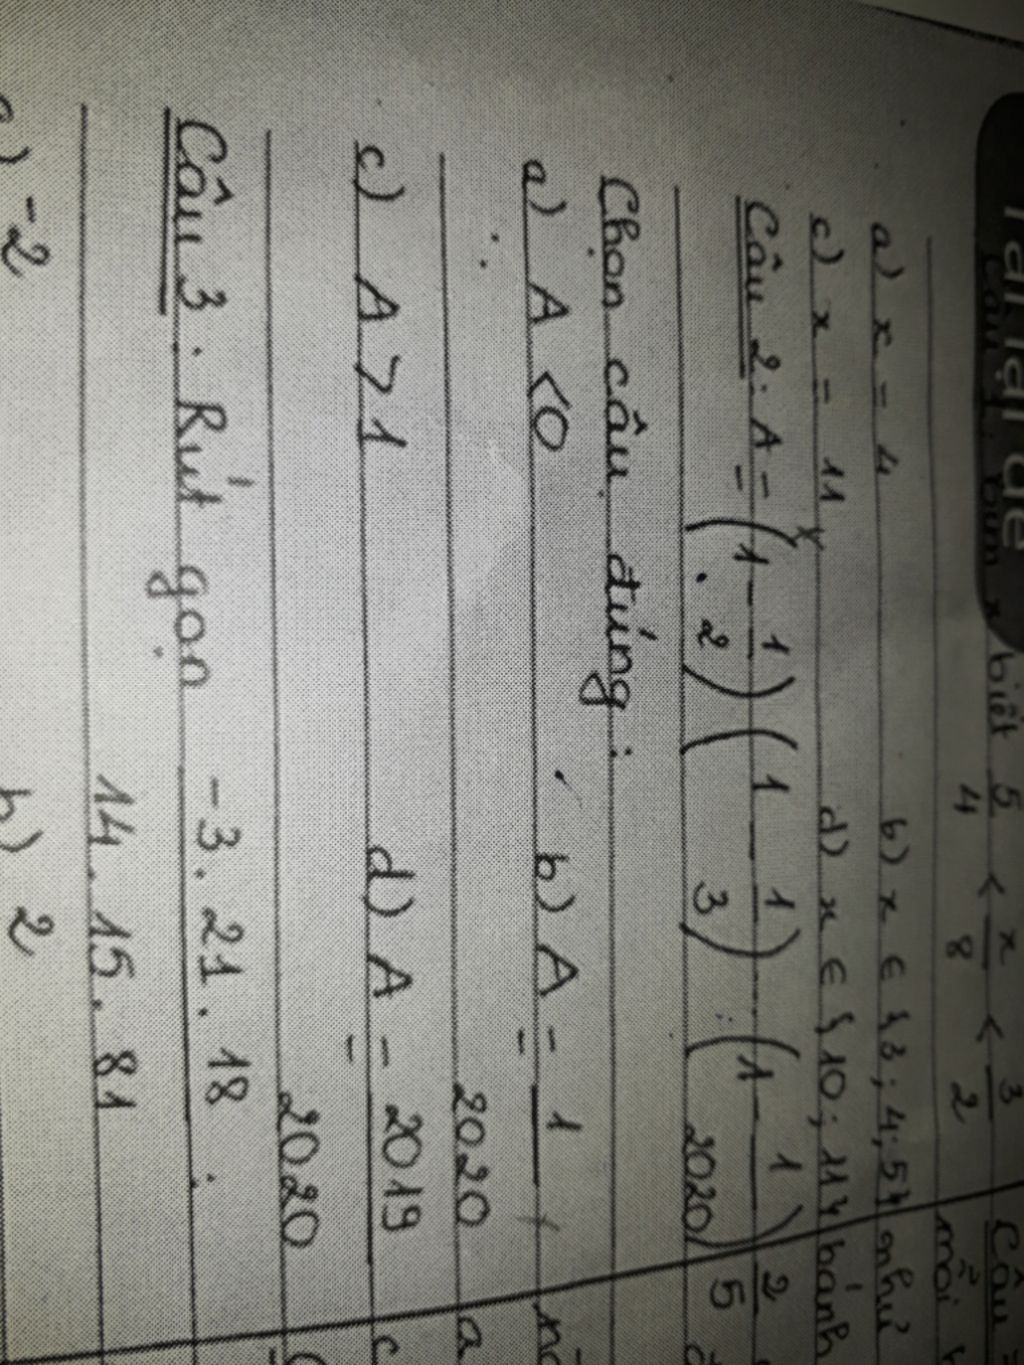 Tải lại đề
biết 5/4 < x/8 < 3/2
a) x = 4 b) x ∈ {3; 4; 5}
c) x = 11 d) x ∈ {10; 11}
Câu 2: A = (1 - 1/2)(1 - 1/3)...(1 - 1/2020)
Chọn câu đúng:
a) A < 0 b) A = 1/2020
c) A > 1 d) A = 2019/2020
Câu 3. Rút gọn -3. 21. 18 / 14. 15. 81
-2 b) 2
Câu
mỗi
như
bánh
2/5
a
c